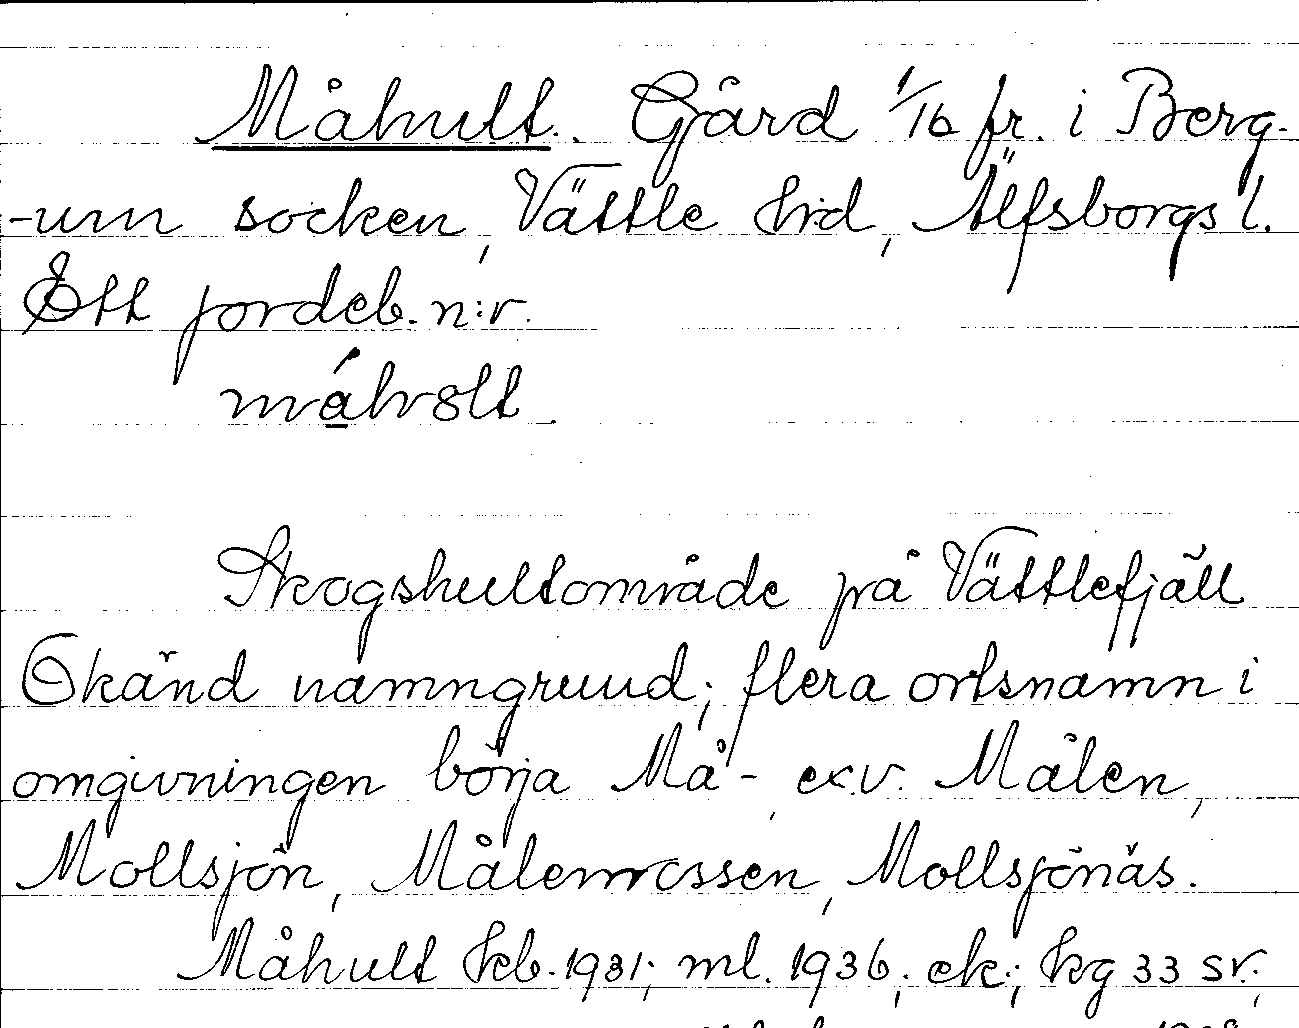 Måhult. Gård 1/16 fr. i Berg-
-um socken, Vättle hrd, Älfsborgs l.
Ett jordeb. n:r.
Skogshultområde på Vättlefjäll
Okänd namngrund; flera ortsnamn i
omgivningen börja Må-, ex.v. Målen,
Mollsjön, Målenmossen, Mollsjönäs.
Måhult kb. 1931; ml. 1936; ek; hg 33 sv;